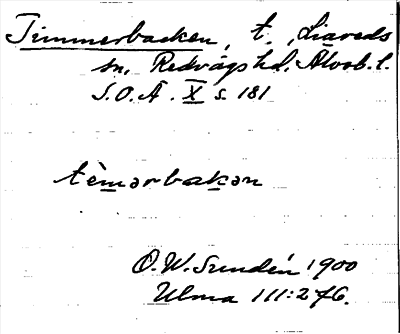 Timmerbacken, t., Liareds
sn, Redvägs hd. Älvsb. l.
S.O.Ä. X s. 181
tèmərbakən
O.W. Sundén 1900
Ulma 111:276.